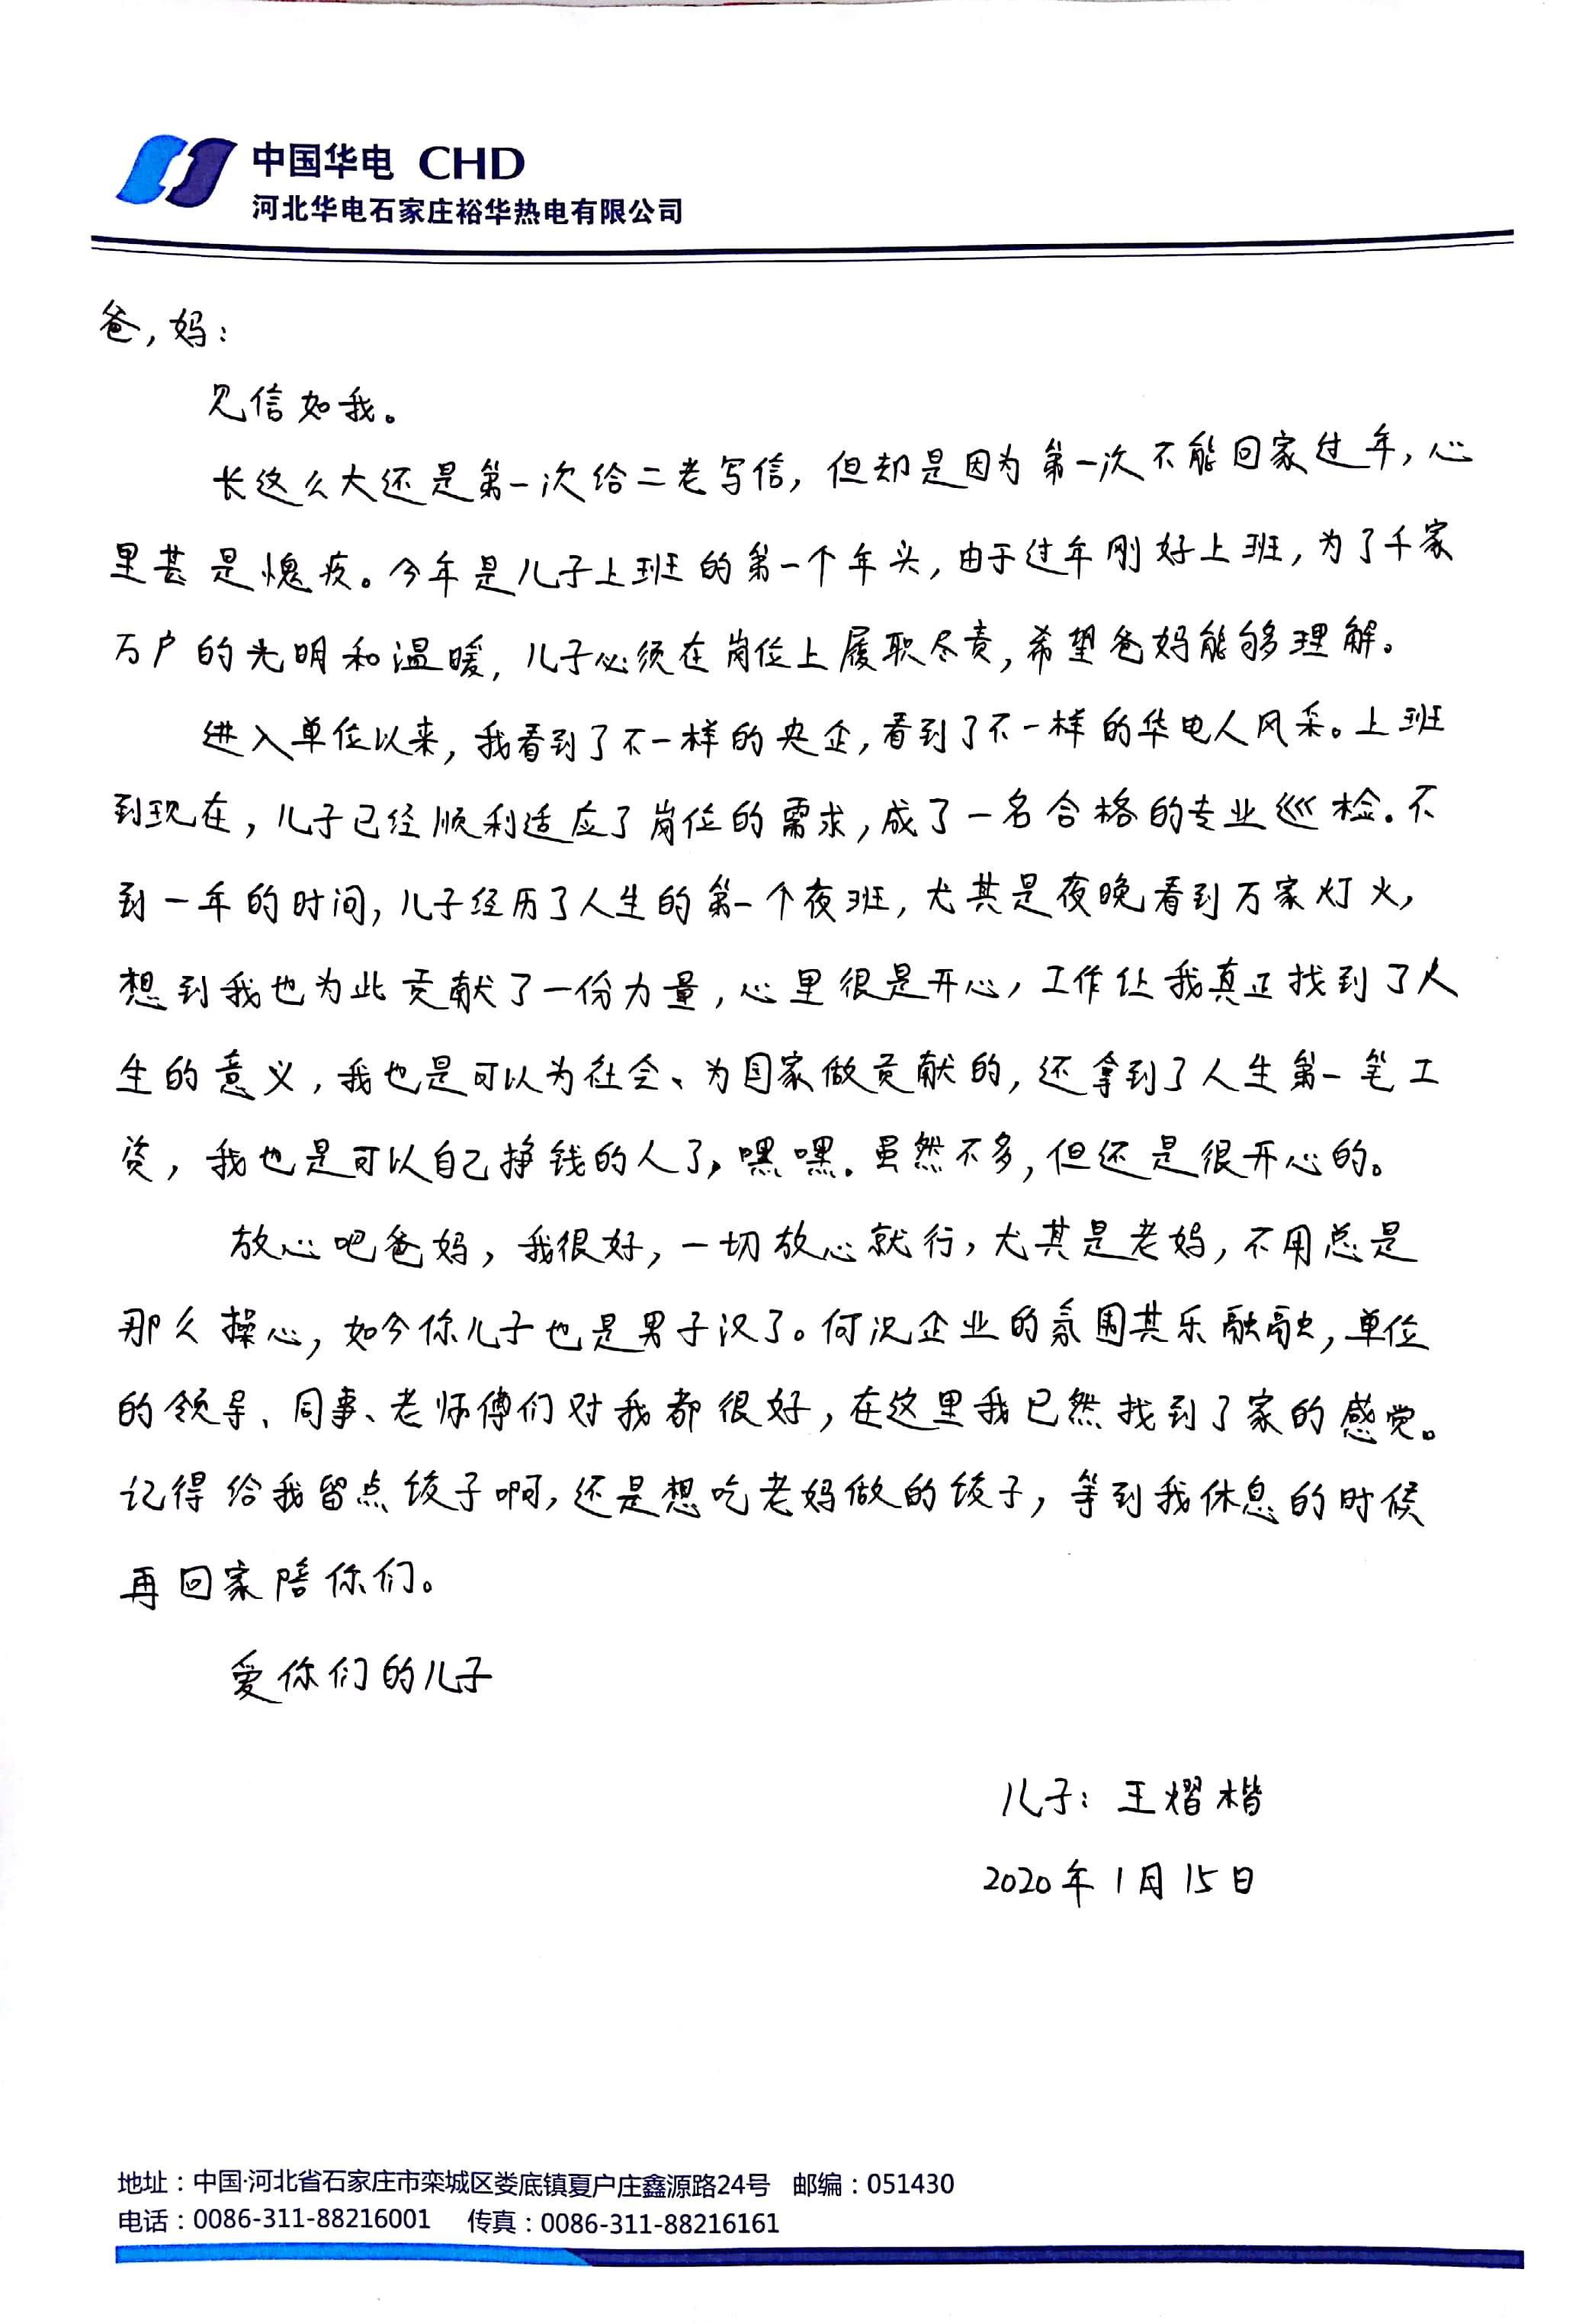 中国华电 CHD
河北华电石家庄裕华热电有限公司
爸,妈:
见信如我。
长这么大还是第一次给二老写信,但却是因为第一次不能回家过年,心
里甚是愧疚。今年是儿子上班的第一个年头,由于过年刚好上班,为了千家
万户的光明和温暖,儿子必须在岗位上履职尽责,希望爸妈能够理解。
进入单位以来,我看到了不一样的央企,看到了不一样的华电人风采。上班
到现在,儿子已经顺利适应了岗位的需求,成了一名合格的专业巡检.不
到一年的时间,儿子经历了人生的第一个夜班,尤其是夜晚看到万家灯火,
想到我也为此贡献了一份力量,心里很是开心,工作让我真正找到了人
生的意义,我也是可以为社会、为国家做贡献的,还拿到了人生第一笔工
资,我也是可以自己挣钱的人了,嘿嘿.虽然不多,但还是很开心的。
放心吧爸妈,我很好,一切放心就行,尤其是老妈,不用总是
那么操心,如今你儿子也是男子汉了。何况企业的氛围其乐融融,单位
的领导、同事、老师傅们对我都很好,在这里我已然找到了家的感觉。
记得给我留点饺子啊,还是想吃老妈做的饺子,等到我休息的时候
再回家陪你们。
爱你们的儿子
儿子:王熠楷
2020年1月15日
地址:中国·河北省石家庄市栾城区娄底镇夏户庄鑫源路24号 邮编:051430
电话:0086-311-88216001 传真:0086-311-88216161